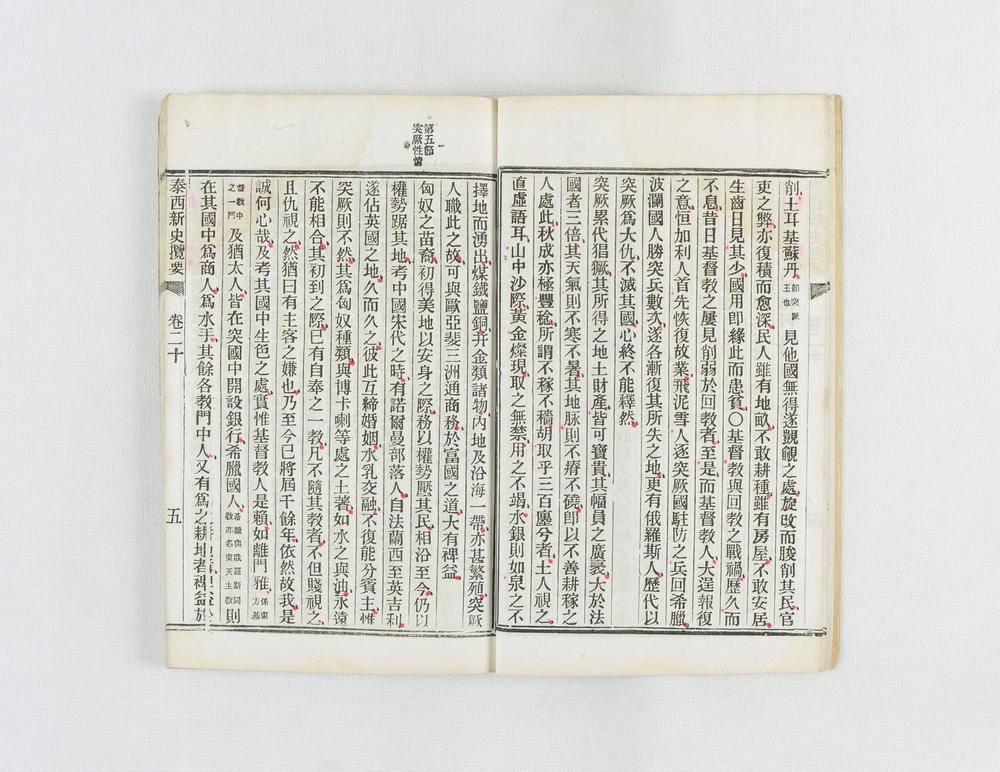 削土耳基蘇丹卽突厥王也見他國無得遂覬覦之處旋改而朘削其民官
吏之弊亦復積而愈深民人雖有地畝不敢耕種雖有房屋不敢安居
生齒日見其少國用卽緣此而患貧〇基督教與回教之戰禍歷久而
不息昔日基督教之屢見削弱於回教者至是而基督教人大逞報復
之意恒加利人首先恢復故業飛泥雪人逐突厥國駐防之兵回希臘
波瀾國人勝突兵數次遂各漸復其所失之地更有俄羅斯人歷代以
突厥爲大仇不滅其國心終不能釋然
突厥累代猖獗其所得之地土財產皆可寶貴其幅員之廣袤大於法
國者三倍其天氣則不寒不暑其地脉則不瘠不磽卽以不善耕稼之
人處此秋成亦極豐稔所謂不稼不穡胡取乎三百廛兮者土人視之
直虛語耳山中沙際黃金燦現取之無禁用之不竭水銀則如泉之不
第五節
突厥性情
擇地而湧出煤鐵鹽銅幷金類諸物內地及沿海一帶亦甚繁殖突厥
人職此之故可與歐亞斐三洲通商務於富國之道大有裨益
匈奴之苗裔初得美地以安身之際務以權勢壓其民相沿至今仍以
權勢踞其地考中國宋代之時有諾爾曼部落人自法蘭西至英吉利
遂佔英國之地久而久之彼此互締婚姻水乳交融不復能分賓主惟
突厥則不然其爲匈奴種類與博卡喇等處之土著如水之與油永遠
不能相合其初到之際已有自奉之一教凡不隨其教者不但賤視之
且仇視之然猶曰有主客之嫌也乃至今已將屆千餘年依然故我是
誠何心哉及考其國中生色之處實惟基督教人是賴如離門雅係東方基
督教中之一門及猶太人皆在突國中開設銀行希臘國人希臘與俄羅斯同教亦名東天主教則
在其國中爲商人爲水手其餘各教門中人又有爲之耕地者裨益於
泰西新史攬要 卷二十 五